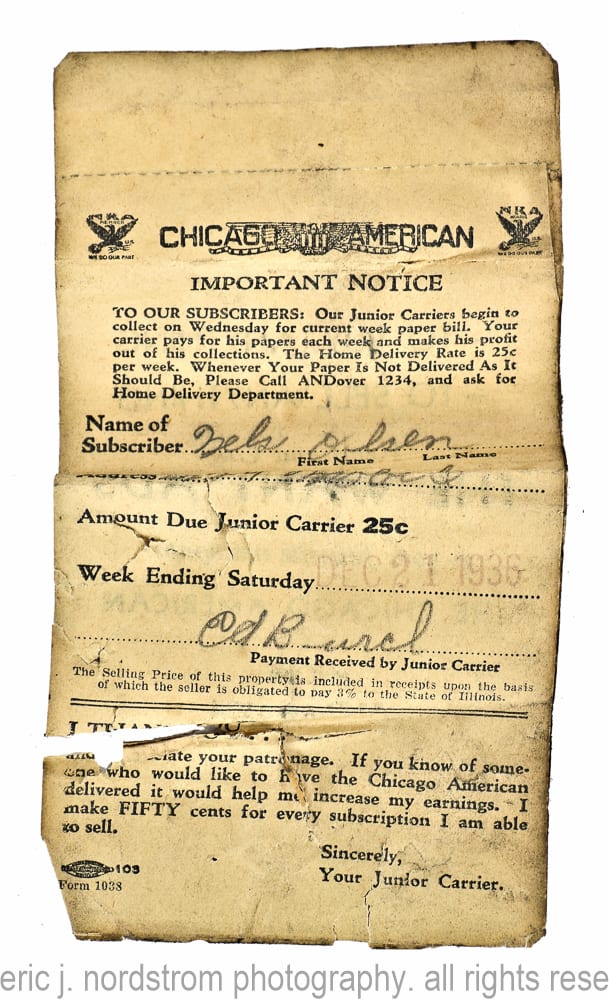 NRA NRA
MEMBER MEMBER
U.S. U.S.
WE DO OUR PART WE DO OUR PART
CHICAGO AMERICAN
IMPORTANT NOTICE
TO OUR SUBSCRIBERS: Our Junior Carriers begin to
collect on Wednesday for current week paper bill. Your
carrier pays for his papers each week and makes his profit
out of his collections. The Home Delivery Rate is 25c
per week. Whenever Your Paper Is Not Delivered As It
Should Be, Please Call ANDover 1234, and ask for
Home Delivery Department.
Name of
Subscriber Nels Olsen
First Name Last Name
Address
Amount Due Junior Carrier 25c
Week Ending Saturday DEC 21 1936
Ed B
Payment Received by Junior Carrier
The Selling Price of this property is included in receipts upon the basis
of which the seller is obligated to pay 3% to the State of Illinois.
I
your patronage. If you know of some-
one who would like to have the Chicago American
delivered it would help me increase my earnings. I
make FIFTY cents for every subscription I am able
to sell.
Sincerely,
Your Junior Carrier.
103
Form 1038
eric j. nordstrom photography. all rights rese